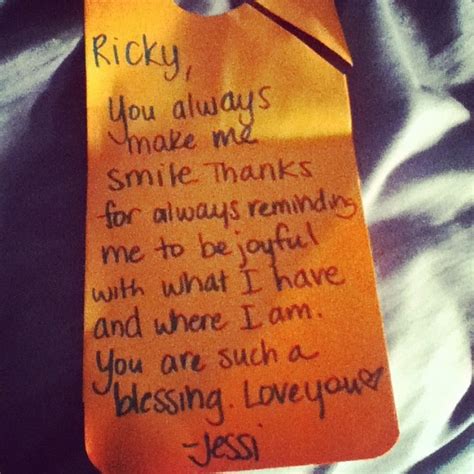 Ricky,
You always
make me
smile Thanks
for always reminding
me to be joyful
with what I have
and where I am.
You are such a
blessing. Love you♡
-Jessi